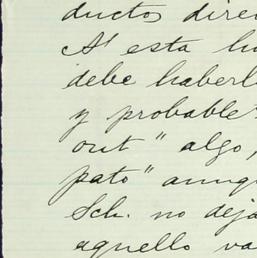 ductos direc
A' esta ho
debe haberl
y probable
out" algo,
pato" aunq
Sch. no dejà
aquello va